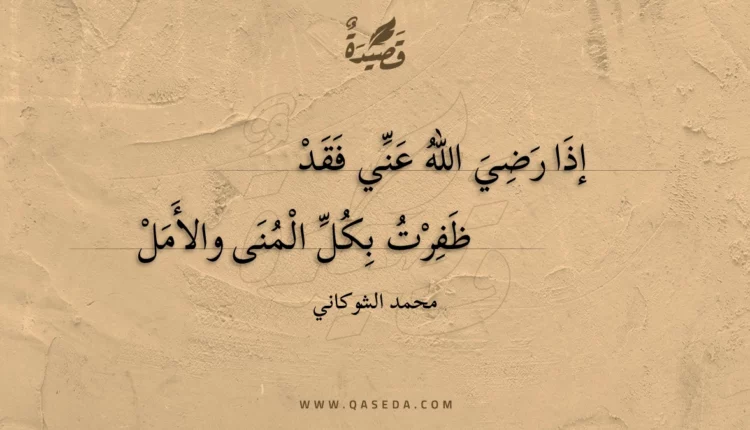 قَصِيدَةٌ
إِذَا رَضِيَ اللهُ عَنِّي فَقَدْ
ظَفِرْتُ بِكُلِّ الْمُنَى والأَمَلْ
محمد الشوكاني
WWW.QASEDA.COM